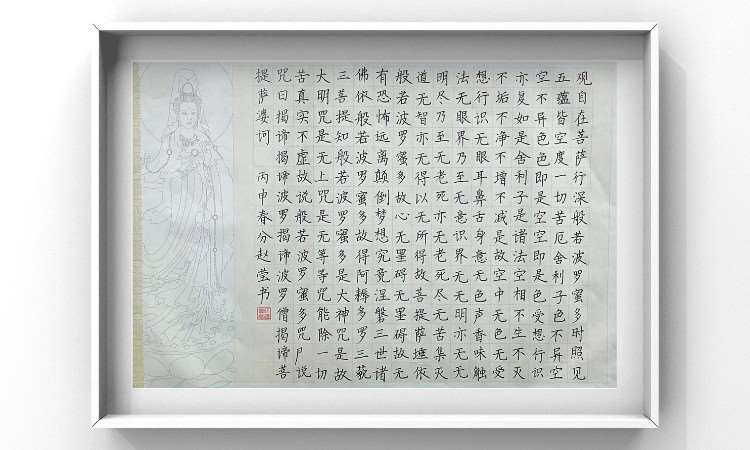 观自在菩萨行深般若波罗蜜多时照见
五蕴皆空度一切苦厄舍利子色不异空
空不异色色即是空空即是色受想行识
亦复如是舍利子是诸法空相不生不灭
不垢不净不增不减是故空中无色无受
想行识无眼耳鼻舌身意无色声香味触
法无眼界乃至无意识界无无明亦无无
明尽乃至无老死亦无老死尽无苦集灭
道无智亦无得以无所得故菩提萨埵依
般若波罗蜜多故心无罣碍无罣碍故无
有恐怖远离颠倒梦想究竟涅槃三世诸
佛依般若波罗蜜多故得阿耨多罗三藐
三菩提知般若波罗蜜多是大神咒是故
大明咒是无上咒是无等等咒能除一切
苦真实不虚故说般若波罗蜜多咒即说
咒曰揭谛揭谛波罗揭谛波罗僧揭谛菩
提萨婆诃 丙申春分赵莹书